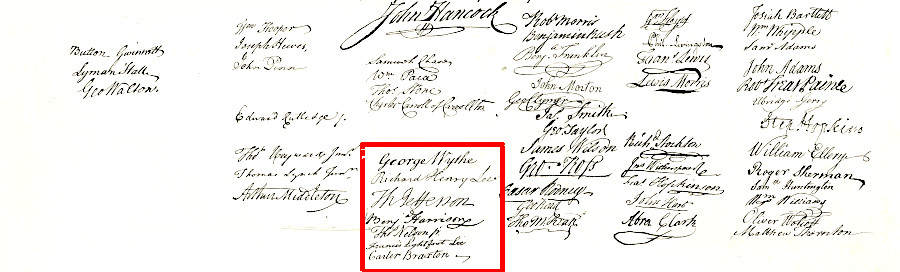 Button Gwinnett
Lyman Hall
Geo Walton.
Wm Hooper
Joseph Hewes,
John Penn
Edward Rutledge /.
Thos Heyward Junr.
Thomas Lynch Junr.
Arthur Middleton
John Hancock
Samuel Chase
Wm Paca
Thos Stone
Charles Carroll of Carrollton
George Wythe
Richard Henry Lee
Th Jefferson
Benj Harrison
Thos Nelson jr.
Francis Lightfoot Lee
Carter Braxton
Robt Morris
Benjamin Rush
Benj. Franklin
John Morton
Geo Clymer
Jas. Smith
Geo. Taylor
James Wilson
Geo. Ross
Caesar Rodney
Geo Read
Tho M:Kean
Wm Floyd
Phil. Livingston
Frans. Lewis
Lewis Morris
Richd. Stockton
Jno Witherspoon
Fras. Hopkinson
John Hart
Abra Clark
Josiah Bartlett
Wm Whipple
Saml Adams
John Adams
Robt Treat Paine
Elbridge Gerry
Step. Hopkins
William Ellery
Roger Sherman
Saml Huntington
Wm. Williams
Oliver Wolcott
Matthew Thornton